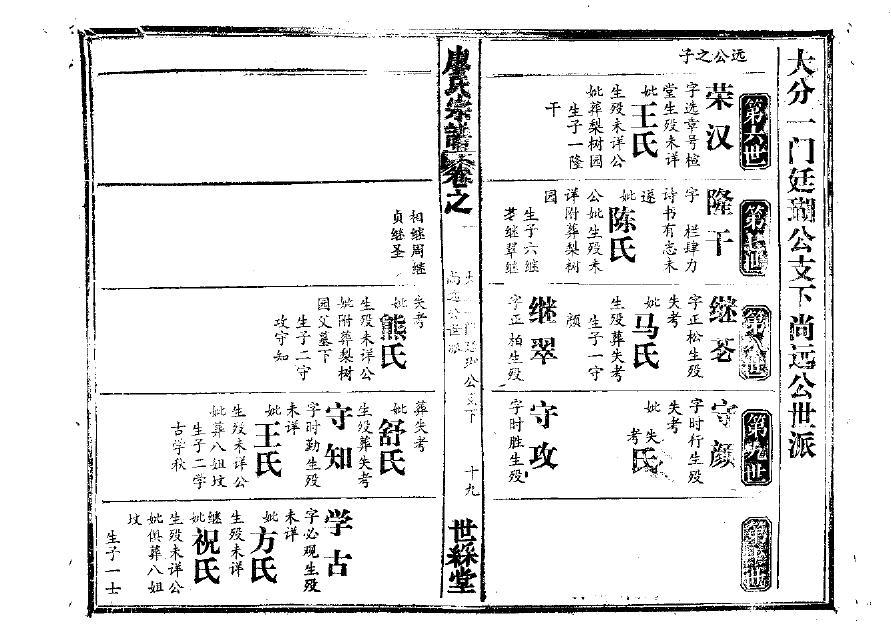 大分一门廷瑚公支下尚远公世派
第六世
远公之子
荣汉
字选章号检
堂生殁未详
妣王氏
生殁未详公
妣葬梨树园
生子一隆
干
第七世
隆干
字　栏肆力
诗书有志未
遂
妣陈氏
公妣生殁未
详附葬梨树
园
生子六继
苍继翠继
第八世
继苍
字正松生殁
失考
妣马氏
生殁葬失考
生子一守
颜
继翠
字正柏生殁
第九世
守颜
字时行生殁
失考
妣失氏
考
守攻
字时胜生殁
第十世
廖氏宗谱卷之一
大分一门廷瑚公支下
尚远公世派
十九
世綵堂
相继周继
贞继圣
失考
妣熊氏
生殁未详公
妣附葬梨树
园父墓下
生子二守
攻守知
葬失考
妣舒氏
生殁葬失考
守知
字时勤生殁
未详
妣王氏
生殁未详公
妣葬八姐坟
生子二学
古学秋
学古
字必观生殁
未详
妣方氏
生殁未详
继妣祝氏
生殁未详公
妣俱葬八姐
坟
生子一士